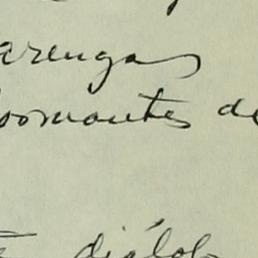 arengas
oomantes de
diálob